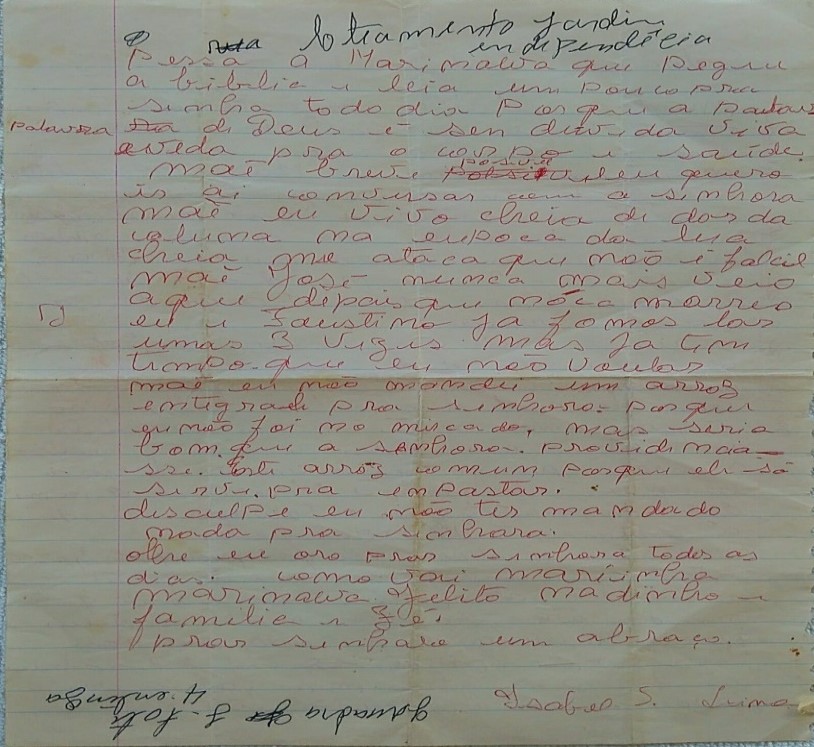 loteamento Jardin
indipendêcia
Pessa a Marinalva que pegue
a bibelia e leia um pouco pra
sinhra todo dia Porque a Palavra
di Deus é sen duvida viva
eveda pra o corpo e saúde.
mãe breve posivel eu quero
ir ai conversar com a sinhora
mãe eu vivo cheia di dor da
coluna na eupoca da lua
cheia mãe ataca que não é facil
mãe José nunca mais veio
aqui depois que moça morreu
eu e Faustino ja fomos lar
umas 3 vezis mas ja tem
timpo que eu não vou lar
mãe eu não mandei um arroz
entigrali pra sinhora. porque
eu não foi no mircado, mas seria
bom que a sinhora. providincia-
sse. este arroz comun porque ele só
sirve. pra enpastar.
disculpe eu não ter mandado
nada pra sinhara.
olhe eu oro pror sinhora todos os
dias. como vai maríinha
marinalva. Felito nadinho e
familia e Zé.
pror sinhora um abraço.
Isabel S. Lima
quadra J. lote
4. entinga